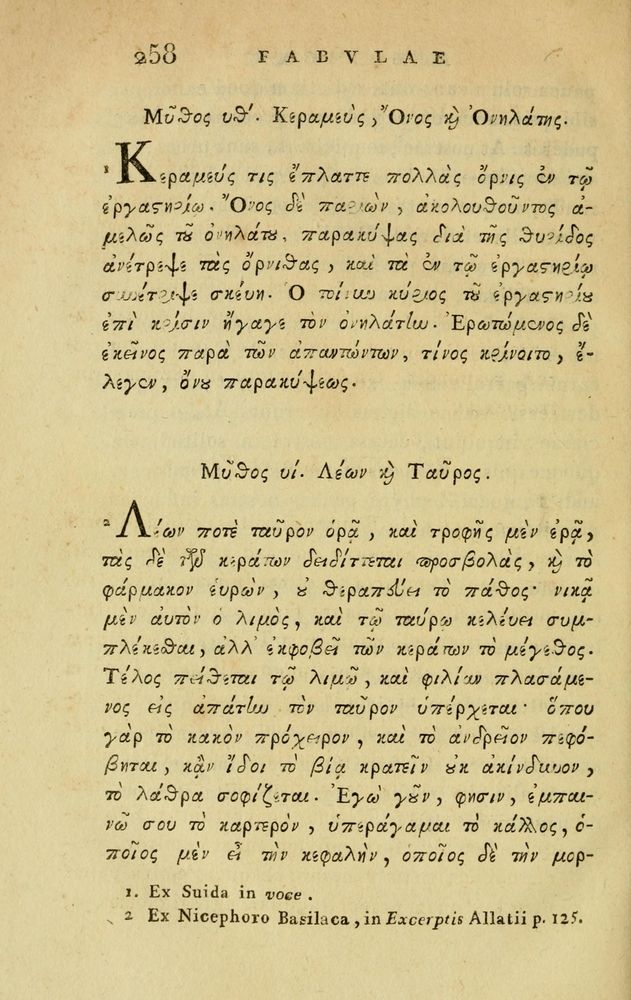 258 FABVLAE
Μῦθος υθ΄. Κεραμεὺς, Ὄνος ϗ Ὀνηλάτης.
¹ Κεραμεύς τις ἔπλαττε πολλὰς ὄρνις ἐν τῷ
ἐργαστηρίῳ. Ὄνος δὲ παριὼν, ἀκολουθοῦντος ἀ-
μελῶς τȣ͂ ὀνηλάτȣ, παρακύψας διὰ τῆς θυρίδος
ἀνέτρεψε τὰς ὄρνιθας, καὶ τὰ ἐν τῷ ἐργαστηρίῳ
συνέτριψε σκέυη. Ὁ τοίνυν κύριος τȣ͂ ἐργαστηρίȣ
ἐπὶ κρίσιν ἤγαγε τὸν ὀνηλάτην. Ἐρωτώμενος δὲ
ἐκεῖνος παρὰ τῶν ἀπαντώντων, τίνος κρίνοιτο, ἔ-
λεγεν, ὄνȣ παρακύψεως.
Μῦθος υί. Λέων ϗ Ταῦρος.
² Λέων ποτὲ ταῦρον ὁρᾷ, καὶ τροφῆς μὲν ἐρᾷ,
τὰς δὲ τῶν κεράτων δειδίττεται προσβολὰς, ϗ τὸ
φάρμακον ἑυρὼν, ȣ θεραπέυει τὸ πάθος· νικᾷ
μὲν αὐτὸν ὁ λιμὸς, καὶ τῷ ταύρῳ κελέυει συμ-
πλέκεσθαι, ἀλλ᾿ ἐκφοβεῖ τῶν κεράτων τὸ μέγεθος.
Τέλος πείθεται τῷ λιμῷ, καὶ φιλίαν πλασάμε-
νος εἰς ἀπάτην τὸν ταῦρον ὑπέρχεται· ὅπου
γὰρ τὸ κακὸν πρόχειρον, καὶ τὸ ἀνδρεῖον πεφό-
βηται, κἂν ἴδοι τὸ βίᾳ κρατεῖν ȣκ ἀκίνδυνον,
τὸ λάθρα σοφίζεται. Ἐγὼ γȣ͂ν, φησιν, ἐμπαι-
νῶ σου τὸ καρτερὸν, ὑπεράγαμαι τὸ κάλλος, ὁ-
ποῖος μὲν εἶ τὴν κεφαλὴν, ὁποῖος δὲ τὴν μορ-
1. Ex Suida in voce.
2 Ex Nicephoro Basilaca, in Excerptis Allatii p. 125.